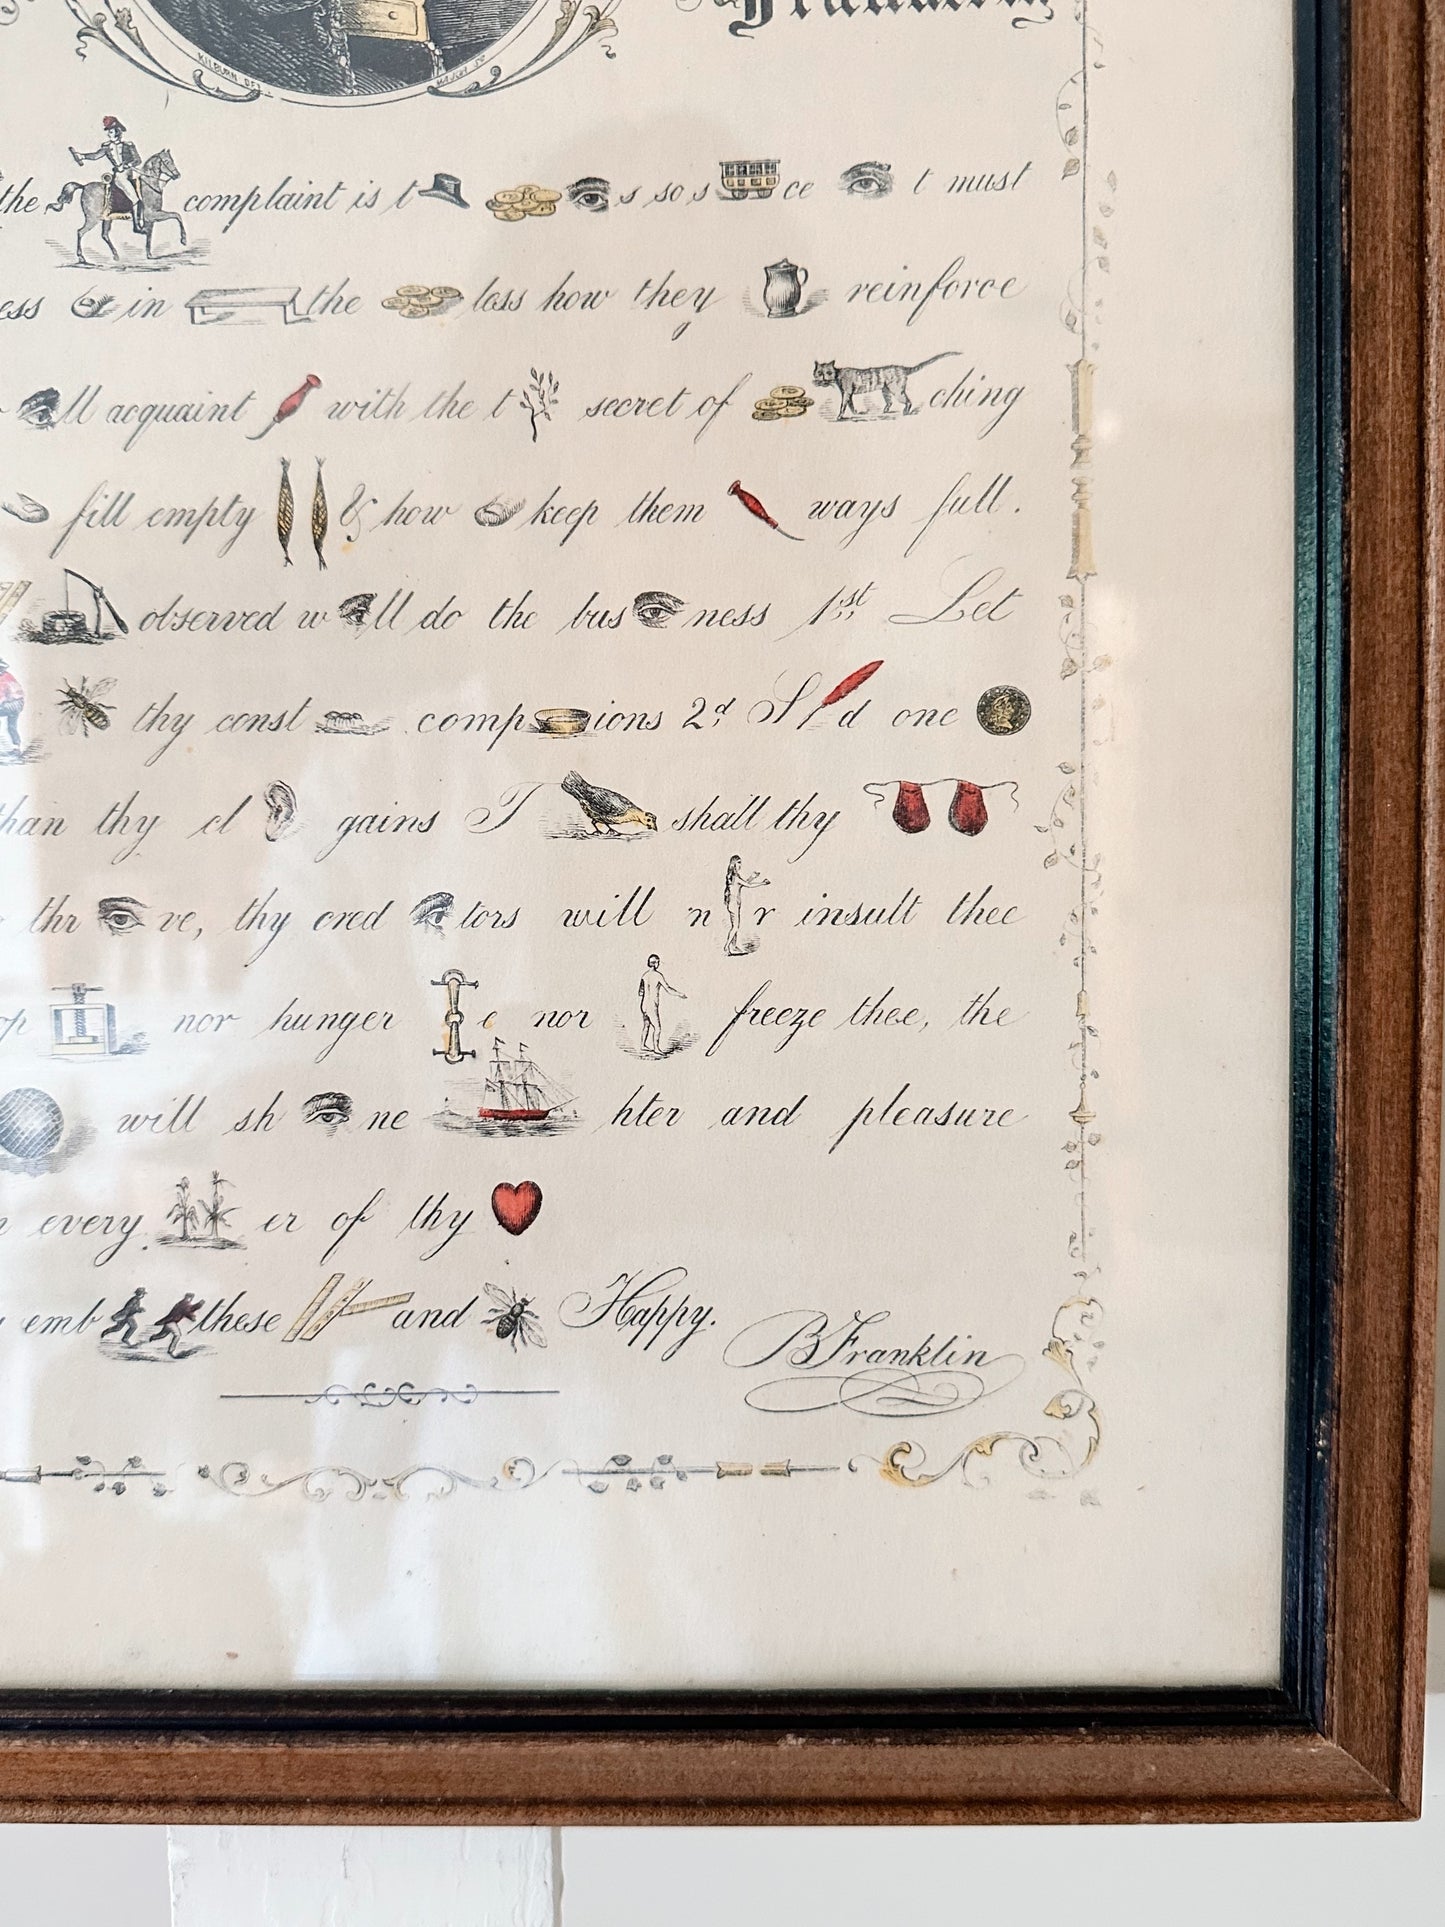 Franklin
KILBURN DEL
the complaint is t s so s ce t must
ess in the less how they reinforce
ll acquaint with the t secret of ching
fill empty & how keep them ways full.
observed w ll do the bus ness 1st Let
thy const comp ions 2d S d one
than thy cl gains T shall thy
thr ve, thy cred tors will n r insult thee
op nor hunger e nor freeze thee, the
will sh ne hter and pleasure
every er of thy
emb these and Happy.
B Franklin